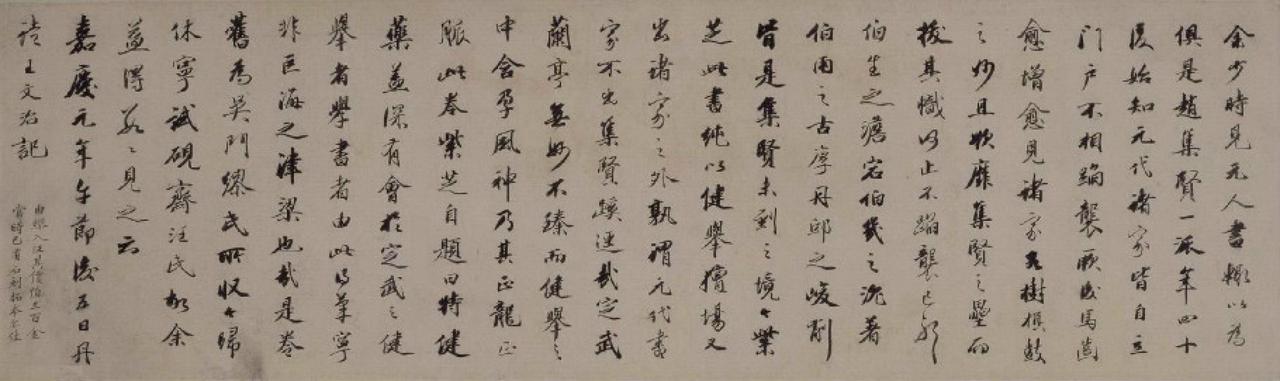 余少時見元人書輒以為
俱是趙集賢一派年四十
後始知元代諸家皆自立
門戶不相蹈襲厥後馬齒
愈增愈見諸家各樹旗鼓
之妙且欲靡集賢之壘而
拔其幟以止不蹈襲已邪
伯生之澹宕伯幾之沉著
伯雨之古厚丹邱之峻削
皆是集賢未到之境々紫
芝此書純以健舉擅場又
出諸家之外孰謂元代書
家不出集賢蹊逕哉定武
蘭亭無妙不臻而健舉之
中含孕風神乃其正龍正
脈此卷紫芝自題曰特健
藥益深有會於定武之健
舉者學書者由此以求寧
非巨海之津梁也哉是卷
舊為吳門繆氏所收今歸
休寧試硯齋汪氏故余
益得數々見之云
嘉慶元年午節後五日丹
徒王文治記
由繆入汪其價伯三百金
當時已有石刻拓本